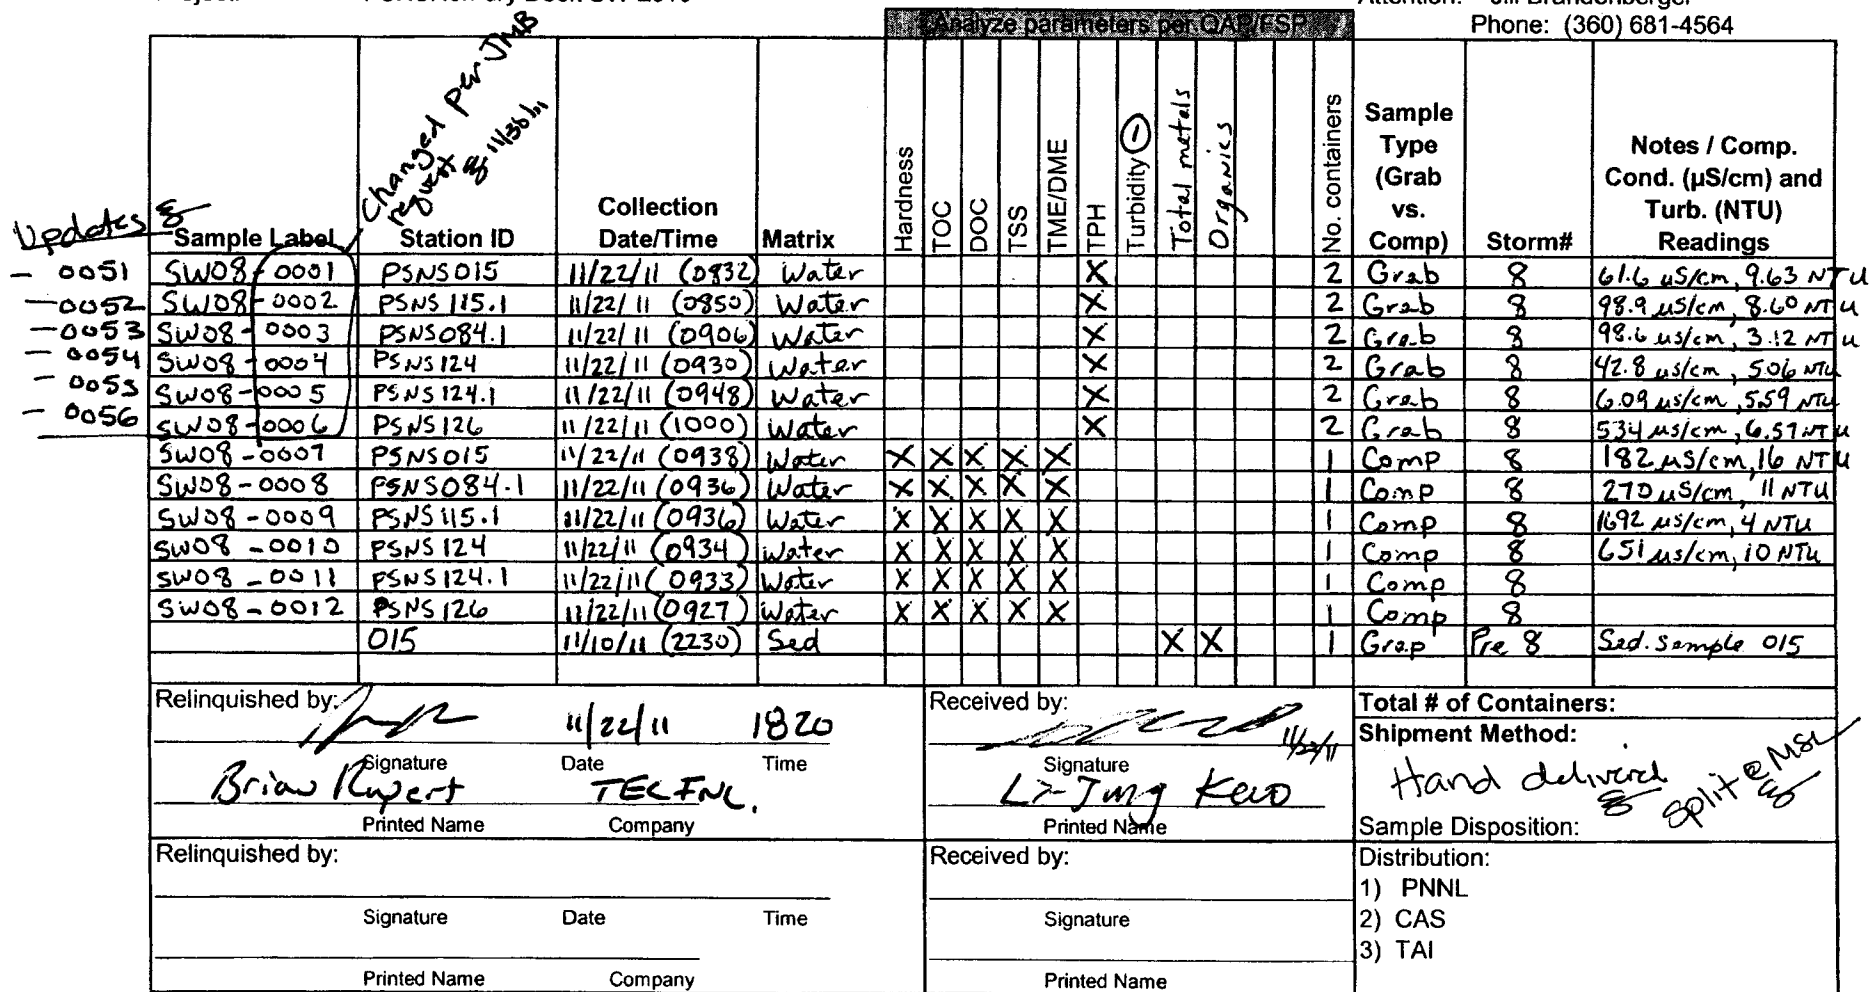 Analyze parameters per QAP/FSP
Phone: (360) 681-4564
Changed per JMB
request 11/30/11
Updates
Sample Label Station ID Collection Date/Time Matrix Hardness TOC DOC TSS TME/DME TPH Turbidity Total metals Organics No. containers Sample Type (Grab vs. Comp) Storm# Notes / Comp. Cond. (µS/cm) and Turb. (NTU) Readings
- 0051 SW08-0001 PSNS015 11/22/11 (0832) Water X 2 Grab 8 61.6 µS/cm, 9.63 NTU
- 0052 SW08-0002 PSNS 115.1 11/22/11 (0850) Water X 2 Grab 8 98.9 µS/cm, 8.60 NTU
- 0053 SW08-0003 PSNS084.1 11/22/11 (0906) Water X 2 Grab 8 98.6 µS/cm, 3.12 NTU
- 0054 SW08-0004 PSNS124 11/22/11 (0930) Water X 2 Grab 8 42.8 µS/cm, 5.06 NTU
- 0055 SW08-0005 PSNS124.1 11/22/11 (0948) Water X 2 Grab 8 6.09 µS/cm, 5.59 NTU
- 0056 SW08-0006 PSNS126 11/22/11 (1000) Water X 2 Grab 8 534 µS/cm, 6.57 NTU
SW08-0007 PSNS015 11/22/11 (0938) Water X X X X X 1 Comp 8 182 µS/cm, 16 NTU
SW08-0008 PSNS084.1 11/22/11 (0936) Water X X X X X 1 Comp 8 270 µS/cm, 11 NTU
SW08-0009 PSNS115.1 11/22/11 (0936) Water X X X X X 1 Comp 8 1692 µS/cm, 4 NTU
SW08-0010 PSNS124 11/22/11 (0934) Water X X X X X 1 Comp 8 651 µS/cm, 10 NTU
SW08-0011 PSNS124.1 11/22/11 (0933) Water X X X X X 1 Comp 8
SW08-0012 PSNS126 11/22/11 (0927) Water X X X X X 1 Comp 8
015 11/10/11 (2230) Sed X X 1 Grap Pre 8 Sed. Sample 015
Relinquished by: 11/22/11 1820
Signature Date Time
Brian Rupert TEC INC.
Printed Name Company
Received by: 11/22/11
Signature
Li-Jung Kuo
Printed Name
Total # of Containers:
Shipment Method:
Hand delivered
Split @ MSL
Sample Disposition:
Relinquished by:
Signature Date Time
Printed Name Company
Received by:
Signature
Printed Name
Distribution:
1) PNNL
2) CAS
3) TAI